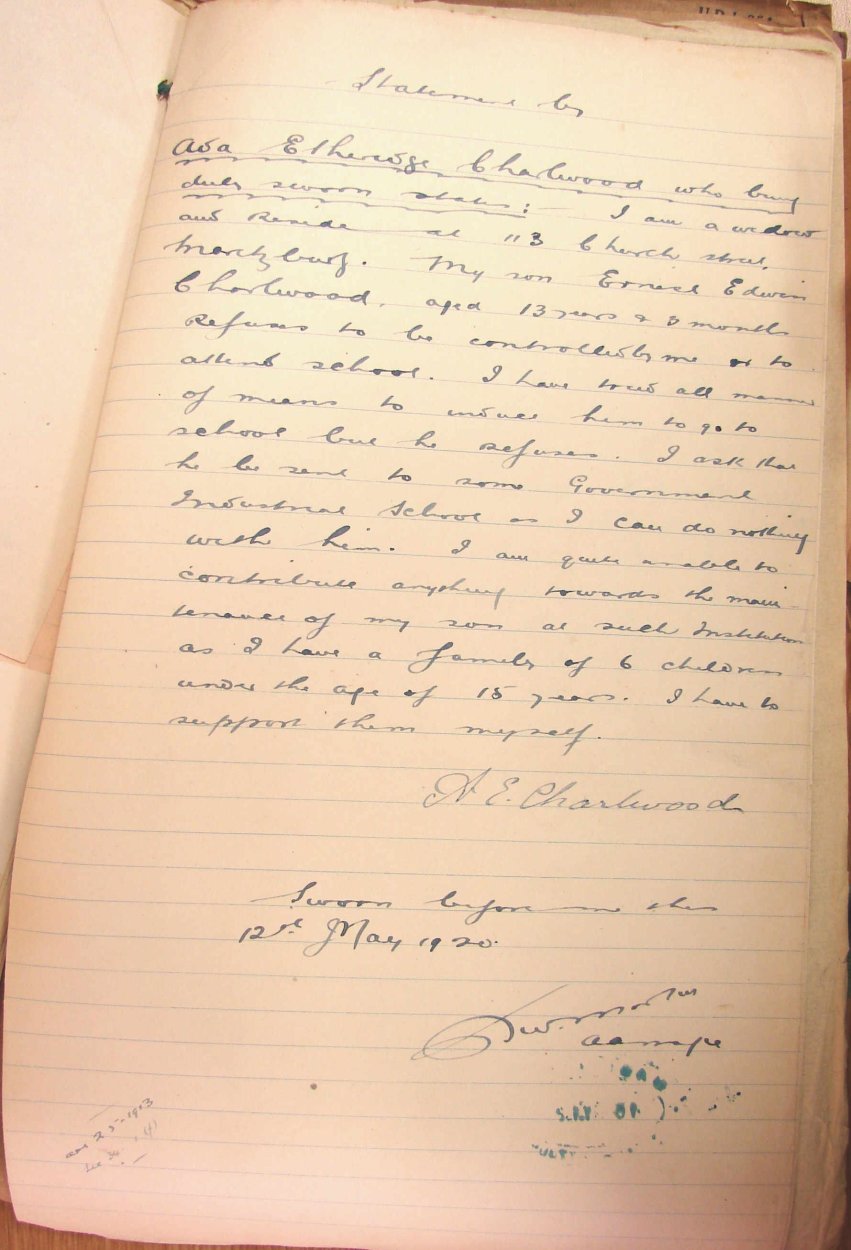 Statement by
Ada Etheredge Charlwood who being
duly sworn states: I am a widow
and Reside at 113 Church Street,
Maritzburg. My son Ernest Edwin
Charlwood, aged 13 years & 3 months
Refuses to be controlled by me or to
attend school. I have tried all manner
of means to induce him to go to
school but he refuses. I ask that
he be sent to some Government
Industrial School as I can do nothing
with him. I am quite unable to
contribute anything towards the main-
tenance of my son at such Institution
as I have a family of 6 children
under the age of 15 years. I have to
support them myself.
A E. Charlwood
Sworn before me this
12th May 1920.